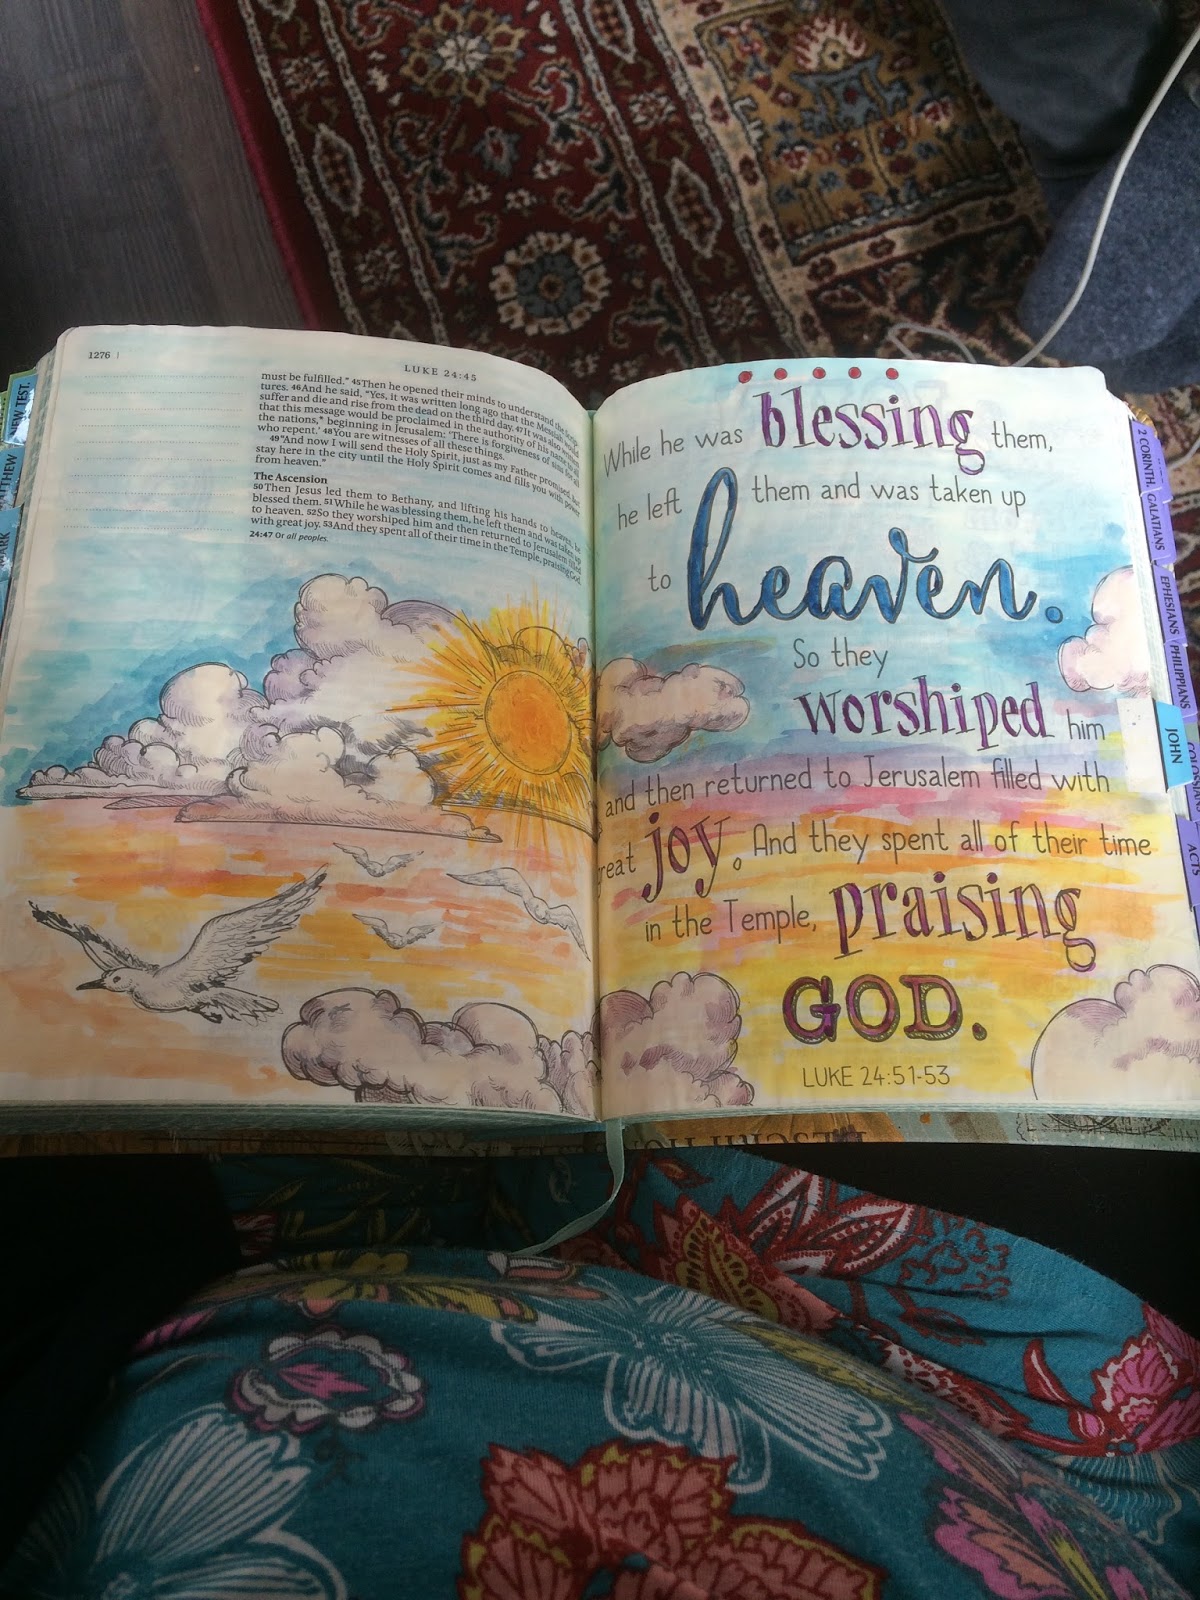 1276
LUKE 24:45
must be fulfilled." 45Then he opened their minds to understand the Scrip-
tures. 46And he said, "Yes, it was written long ago that the Messiah would
suffer and die and rise from the dead on the third day. 47It was also written
that this message would be proclaimed in the authority of his name to all
the nations,* beginning in Jerusalem: 'There is forgiveness of sins for all
who repent.' 48You are witnesses of all these things.
49"And now I will send the Holy Spirit, just as my Father promised. But
stay here in the city until the Holy Spirit comes and fills you with power
from heaven."
The Ascension
50Then Jesus led them to Bethany, and lifting his hands to heaven, he
blessed them. 51While he was blessing them, he left them and was taken up
to heaven. 52So they worshiped him and then returned to Jerusalem filled
with great joy. 53And they spent all of their time in the Temple, praising God.
24:47 Or all peoples.
NEW TEST.
While he was blessing them,
he left them and was taken up
to heaven.
So they
worshiped him
and then returned to Jerusalem filled with
great joy. And they spent all of their time
in the Temple, praising
GOD.
LUKE 24:51-53
2 CORINTH.
GALATIANS
EPHESIANS
PHILIPPIANS
JOHN
ACTS